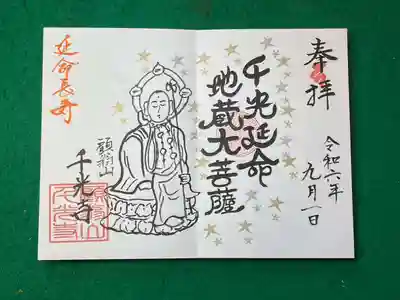 奉拝
令和六年
九月一日
千光延命
地蔵大菩薩
延命長寿
頭
山
千光寺